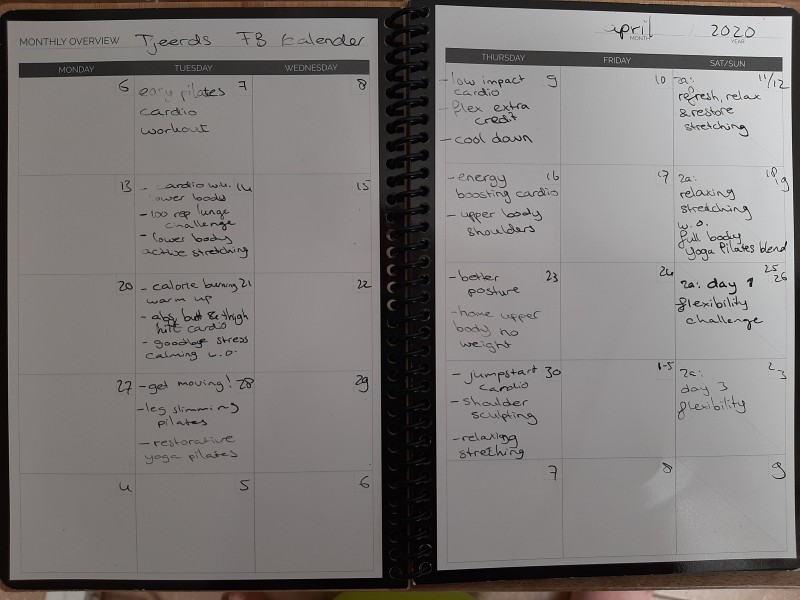 MONTHLY OVERVIEW Tjeerds FB Kalender
MONDAY TUESDAY WEDNESDAY
6
easy pilates 7
cardio
workout
8
13
- cardio w.u. 14
lower body
- 100 rep lunge
challenge
- lower body
active stretching
15
20
- calorie burning 21
warm up
- abs, butt & thigh
hiit cardio
- goodbye stress
calming w.o.
22
27
- get moving! 28
- leg slimming
pilates
- restorative
yoga pilates
29
4
5
6
april 2020
MONTH YEAR
THURSDAY FRIDAY SAT/SUN
- low impact 9
cardio
- flex extra
credit
- cool down
10
za: 11/12
refresh, relax
& restore
stretching
- energy 16
boosting cardio
- upper body
shoulders
17
za: 18 19
relaxing
stretching
w.o.
full body
yoga pilates blend
- better 23
posture
- home upper
body no
weight
24
25
za: day 1 26
flexibility
challenge
- jumpstart 30
cardio
- shoulder
sculpting
- relaxing
stretching
1-5
za: 2 3
day 3
flexibility
7
8
9